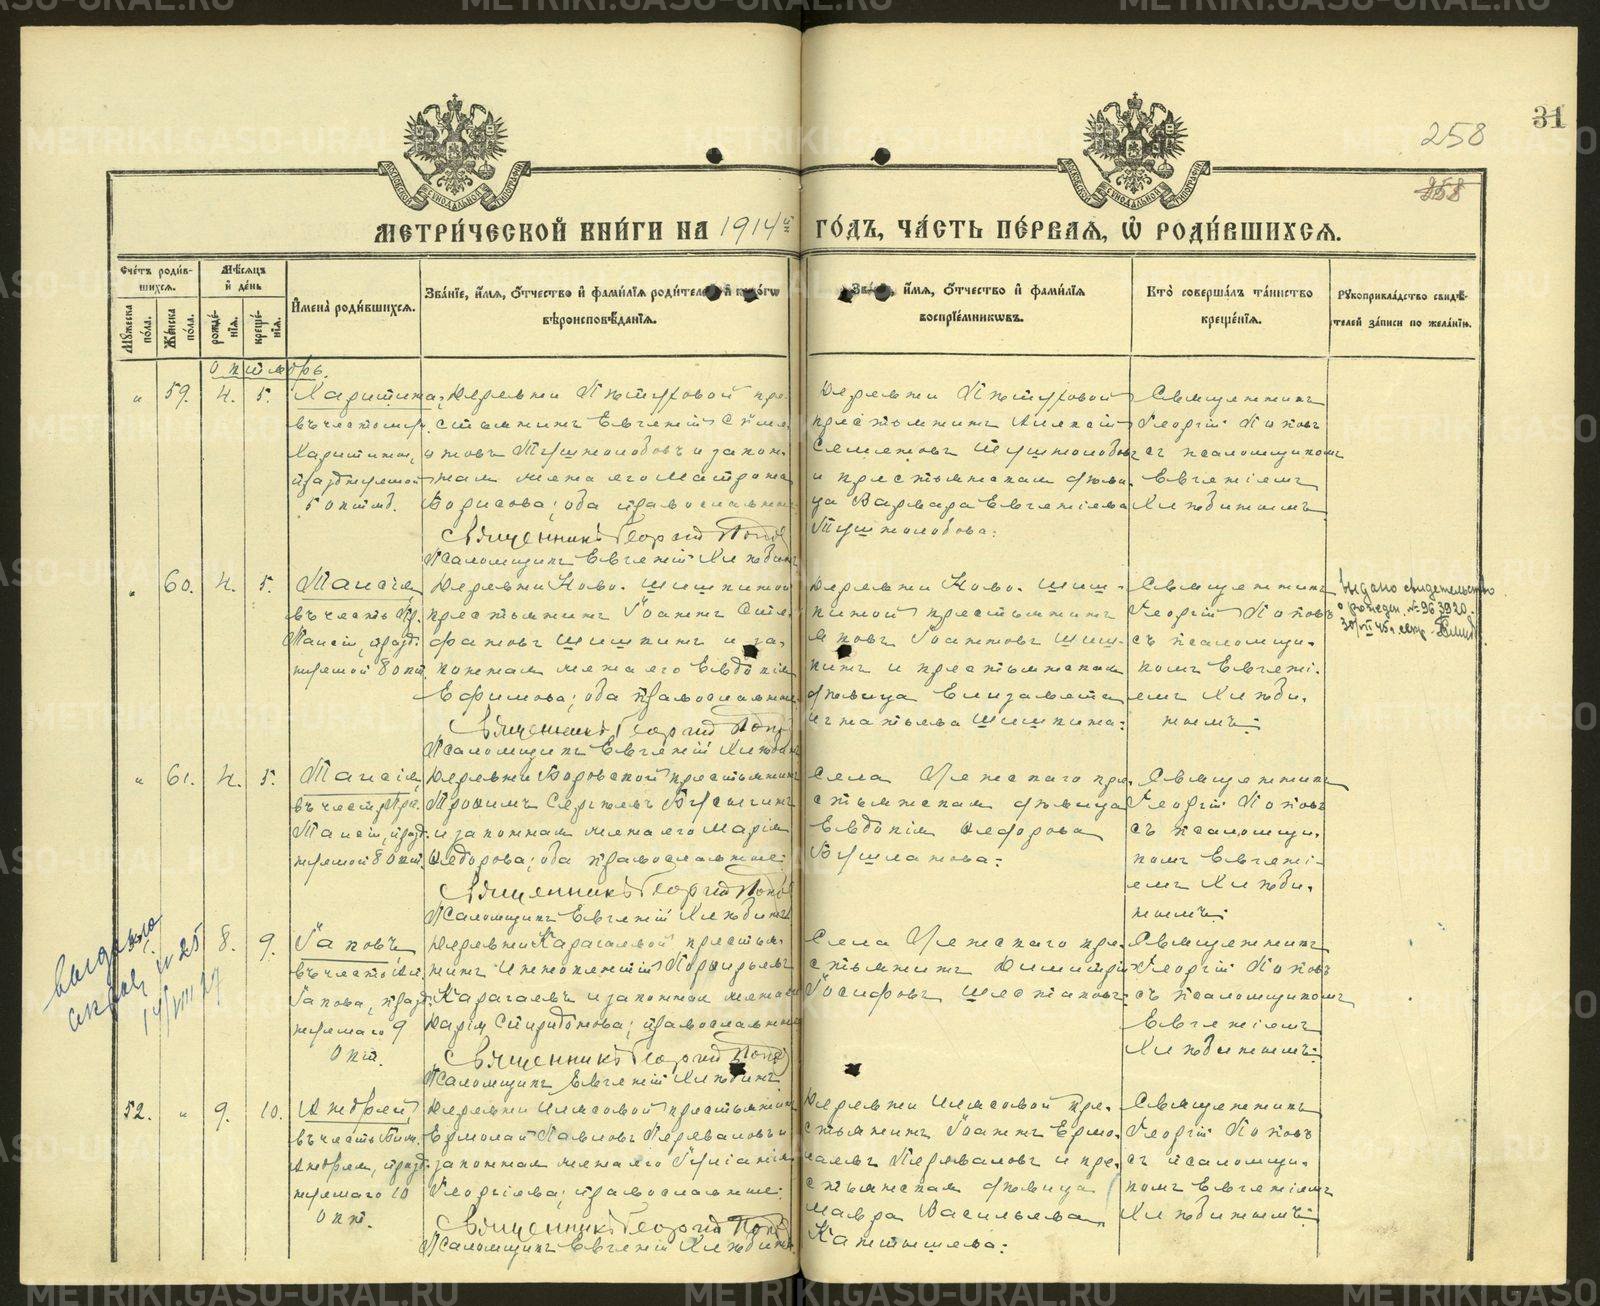 31
258
258
МОСКОВСКОЙ СѴНОДАЛЬНОЙ ТИПОГРАФІИ
МОСКОВСКОЙ СѴНОДАЛЬНОЙ ТИПОГРАФІИ
МЕТРИ́ЧЕСКОЙ КНИ́ГИ НА 1914й ГО́ДЪ, ЧА́СТЬ ПЕ́РВАЯ, Ѡ҆ РОДИ́ВШИХСЯ.
Сче́тъ роди́в-
шихся.
Мѣ́сяцъ
и҆ де́нь
Му́жеска по́ла.
Же́нска по́ла.
рожде́-
нїя.
креще́-
нїя.
И҆мена̀ роди́вшихся.
Зва́нїе, и҆́мя, ѻ҆́тчество и҆ фами́лїя роди́телей, и҆ како́гѡ
вѣроисповѣ́данїя.
Зва́нїе, и҆́мя, ѻ҆́тчество и҆ фами́лїя
воспрїе́мникѡвъ.
Кто̀ соверша́лъ та́инство
креще́нїя.
Рꙋкоприкла́дство свидѣ́-
телей за́писи по жела́нїю.
Октябрь.
" 59. 4. 5.
Харитина,
въ честь муч.
Харитины,
празднуемой
5 октяб.
Деревни Пѣтуховой кре-
стьянинъ Евгеній
Тушнолобовъ и закон-
ная жена его Матрона
Борисова; оба православные
Священникъ Георгій Попов
Псаломщикъ Евгеній Хлѣбинъ
Деревни Пѣтуховой
крестьянинъ Алексій
Семеновъ Тушнолобовъ
и крестьянская дѣви-
ца Варвара Евгеніева
Тушнолобова:
Священникъ
Георгій Поповъ
съ псаломщикомъ
Евгеніемъ
Хлѣбинымъ.
" 60. 4. 5.
Таисія,
въ честь Пр.
Таисіи, празд-
нуемой 8 окт.
Деревни Ново-Шишкиной
крестьянинъ Іоаннъ
Шишкинъ и за-
конная жена его Евдокія
Ефимова; оба православные
Священникъ Георгій Попов
Псаломщикъ Евгеній Хлѣбинъ
Деревни Ново-Шиш-
киной крестьянинъ
Іоанновъ Шиш-
кинъ и крестьянская
дѣвица Елизавета
Игнатьева Шишкина:
Священникъ
Георгій Поповъ
съ псаломщи-
комъ Евгені-
емъ Хлѣби-
нымъ:
Выдано свидетельство
о рожден. № 963920.
30/VII 45г.
" 61. 4. 5.
Таисія,
въ честь Пр.
Таисіи, празд-
нуемой 8 окт.
Деревни Боровской крестьянинъ
Трофимъ Сергѣевъ
и законная жена его Марія
Ѳедорова; оба православные:
Священникъ Георгій Попов
Псаломщикъ Евгеній Хлѣбинъ
Села кре-
стьянская дѣвица
Евдокія Ѳедорова
Священникъ
Георгій Поповъ
съ псаломщи-
комъ Евгені-
емъ Хлѣби-
нымъ:
8. 9.
Іаковъ
въ честь Ап.
Іакова, празд-
нуемаго 9
Окт.
Деревни Карагаевой крестья-
нинъ Иннокентій Порфирьевъ
Карагаевъ и законная жена его
Дарія Спиридонова; православные
Священникъ Георгій Попов
Псаломщикъ Евгеній Хлѣбинъ
Села кре-
стьянинъ Димитрій
Іосифовъ Шестаковъ:
Священникъ
Георгій Поповъ
съ псаломщикомъ
Евгеніемъ
Хлѣбинымъ:
выдана
14/VIII 27
52. " 9. 10.
Андрей
въ честь
Андрея, празд-
нуемаго 10
Окт.
Деревни крестьянинъ
Ермолай Павловъ Переваловъ и
законная жена его Іуліанія
Георгіева; православные:
Священникъ Георгій Попов
Псаломщикъ Евгеній Хлѣбинъ
Деревни кре-
стьянинъ Іоаннъ Ермо-
лаевъ Переваловъ и кре-
стьянская дѣвица
Мавра Васильева
Священникъ
Георгій Поповъ
съ псаломщи-
комъ Евгеніемъ
Хлѣбинымъ:
METRIKI.GASO-URAL.RU